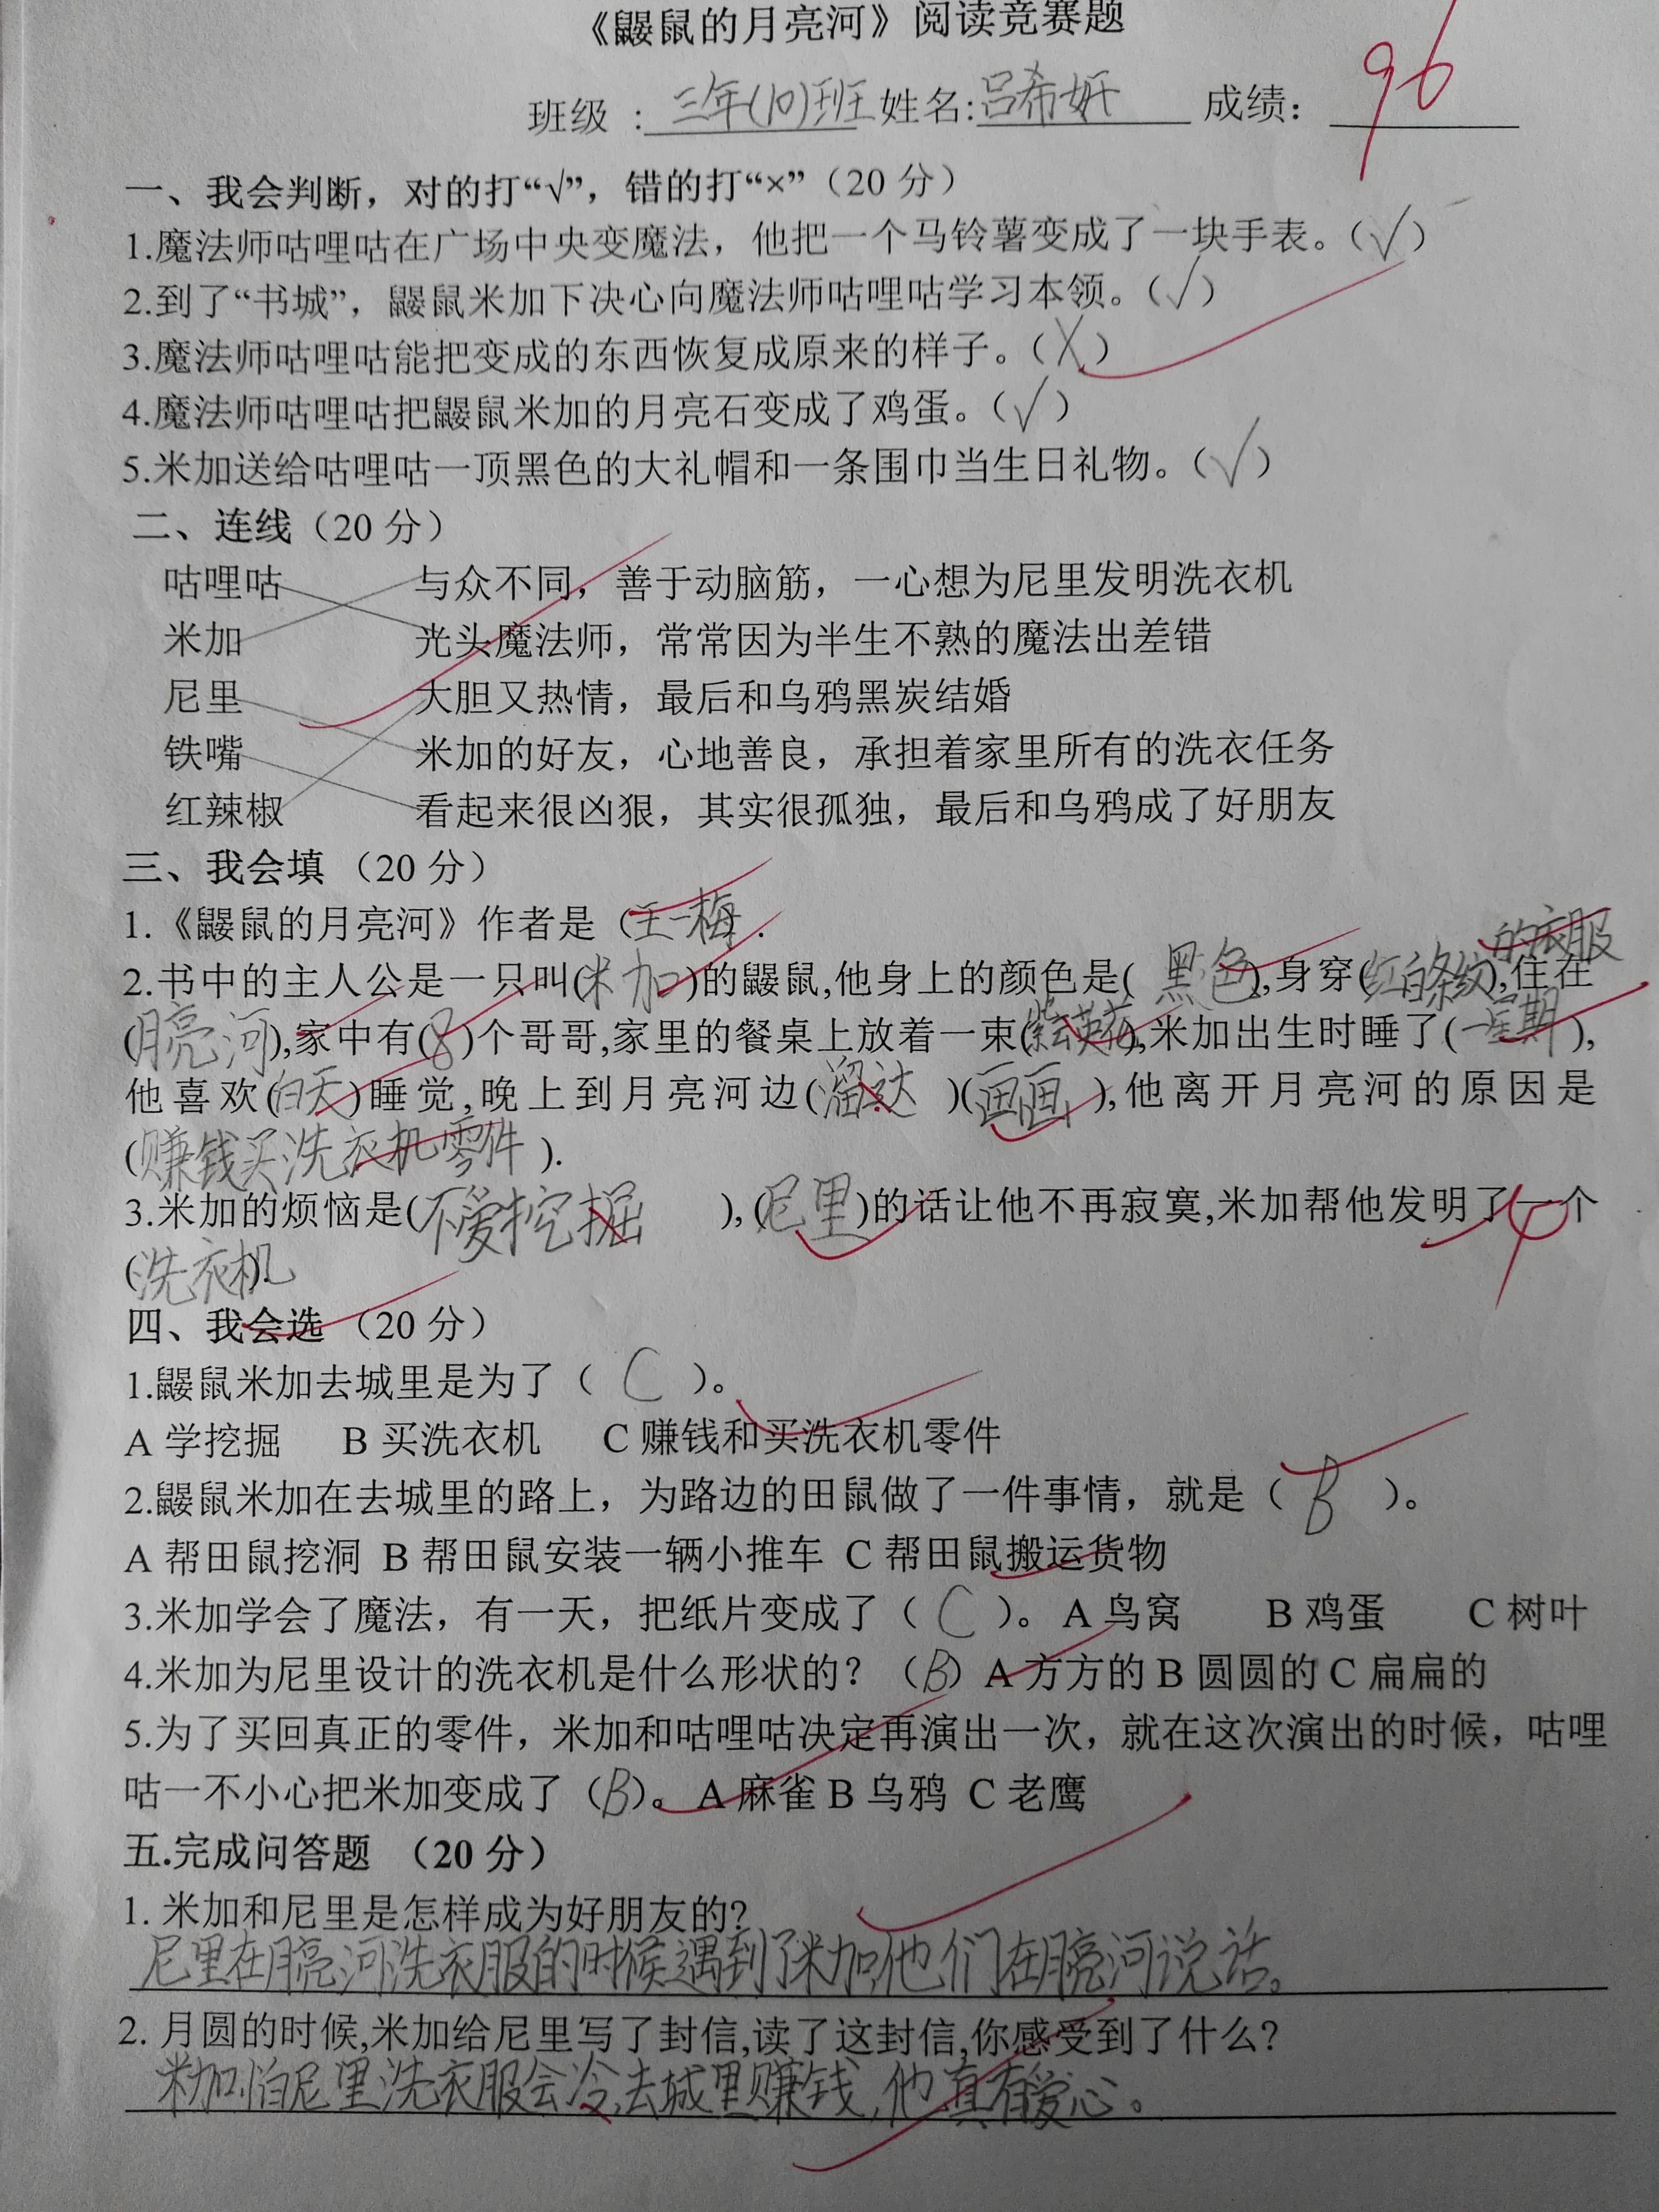 《鼹鼠的月亮河》阅读竞赛题
班级：三年(10)班 姓名:吕希妍 成绩：96
一、我会判断，对的打“√”，错的打“×”（20 分）
1.魔法师咕哩咕在广场中央变魔法，他把一个马铃薯变成了一块手表。（√）
2.到了“书城”，鼹鼠米加下决心向魔法师咕哩咕学习本领。（√）
3.魔法师咕哩咕能把变成的东西恢复成原来的样子。（X）
4.魔法师咕哩咕把鼹鼠米加的月亮石变成了鸡蛋。（√）
5.米加送给咕哩咕一顶黑色的大礼帽和一条围巾当生日礼物。（√）
二、连线（20 分）
咕哩咕 与众不同，善于动脑筋，一心想为尼里发明洗衣机
米加 光头魔法师，常常因为半生不熟的魔法出差错
尼里 大胆又热情，最后和乌鸦黑炭结婚
铁嘴 米加的好友，心地善良，承担着家里所有的洗衣任务
红辣椒 看起来很凶狠，其实很孤独，最后和乌鸦成了好朋友
三、我会填 （20 分）
1.《鼹鼠的月亮河》作者是（王一梅.
的衣服
2.书中的主人公是一只叫(米加)的鼹鼠,他身上的颜色是( 黑色),身穿(红白条纹),住在
(月亮河),家中有(8)个哥哥,家里的餐桌上放着一束(紫英花),米加出生时睡了(一星期),
他喜欢(白天)睡觉,晚上到月亮河边(溜达 )(画画 ),他离开月亮河的原因是
(赚钱买洗衣机零件 ).
3.米加的烦恼是(不爱挖掘 ),(尼里)的话让他不再寂寞,米加帮他发明了一个
(洗衣机).
四、我会选（20 分）
1.鼹鼠米加去城里是为了（ C ）。
A 学挖掘 B 买洗衣机 C 赚钱和买洗衣机零件
2.鼹鼠米加在去城里的路上，为路边的田鼠做了一件事情，就是（ B ）。
A 帮田鼠挖洞 B 帮田鼠安装一辆小推车 C 帮田鼠搬运货物
3.米加学会了魔法，有一天，把纸片变成了（ C ）。A 鸟窝 B 鸡蛋 C 树叶
4.米加为尼里设计的洗衣机是什么形状的？（B）A 方方的 B 圆圆的 C 扁扁的
5.为了买回真正的零件，米加和咕哩咕决定再演出一次，就在这次演出的时候，咕哩
咕一不小心把米加变成了（B）。A 麻雀 B 乌鸦 C 老鹰
五.完成问答题 （20 分）
1. 米加和尼里是怎样成为好朋友的?
尼里在月亮河洗衣服的时候遇到了米加,他们在月亮河说话。
2. 月圆的时候,米加给尼里写了封信,读了这封信,你感受到了什么?
米加怕尼里洗衣服会冷,去城里赚钱,他真有爱心。